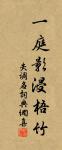 一庭影浸梧竹
夫调名词典网集